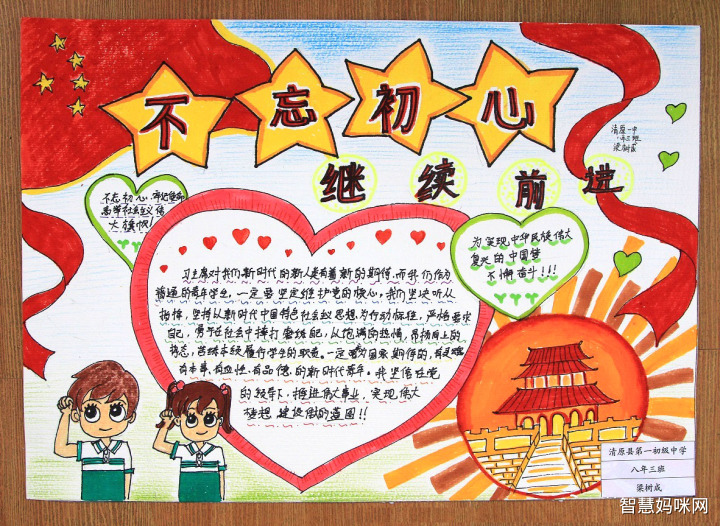 不忘初心
继续前进
清原一中
八年三班
梁树成
不忘初心,牢记使命
高举社会主义伟
大旗帜!
为实现中华民族伟大
复兴的中国梦
不懈奋斗!!!
习主席对我们新时代的新人是有着新的期待,而我们作为
普通的青年学生,一定要坚定维护党的核心,我们坚决听从
指挥,坚持以新时代中国特色社会主义思想为行动标准,严格要求
自己,勇于在社会中摔打磨练自己,以饱满的热情,昂扬向上的
有本事,有品德,的新时代青年。我坚信在党
的领导下,推进伟大事业,实现伟大
梦想,建设伟大的祖国!!
清原县第一初级中学
八年三班
梁树成
智慧妈咪网